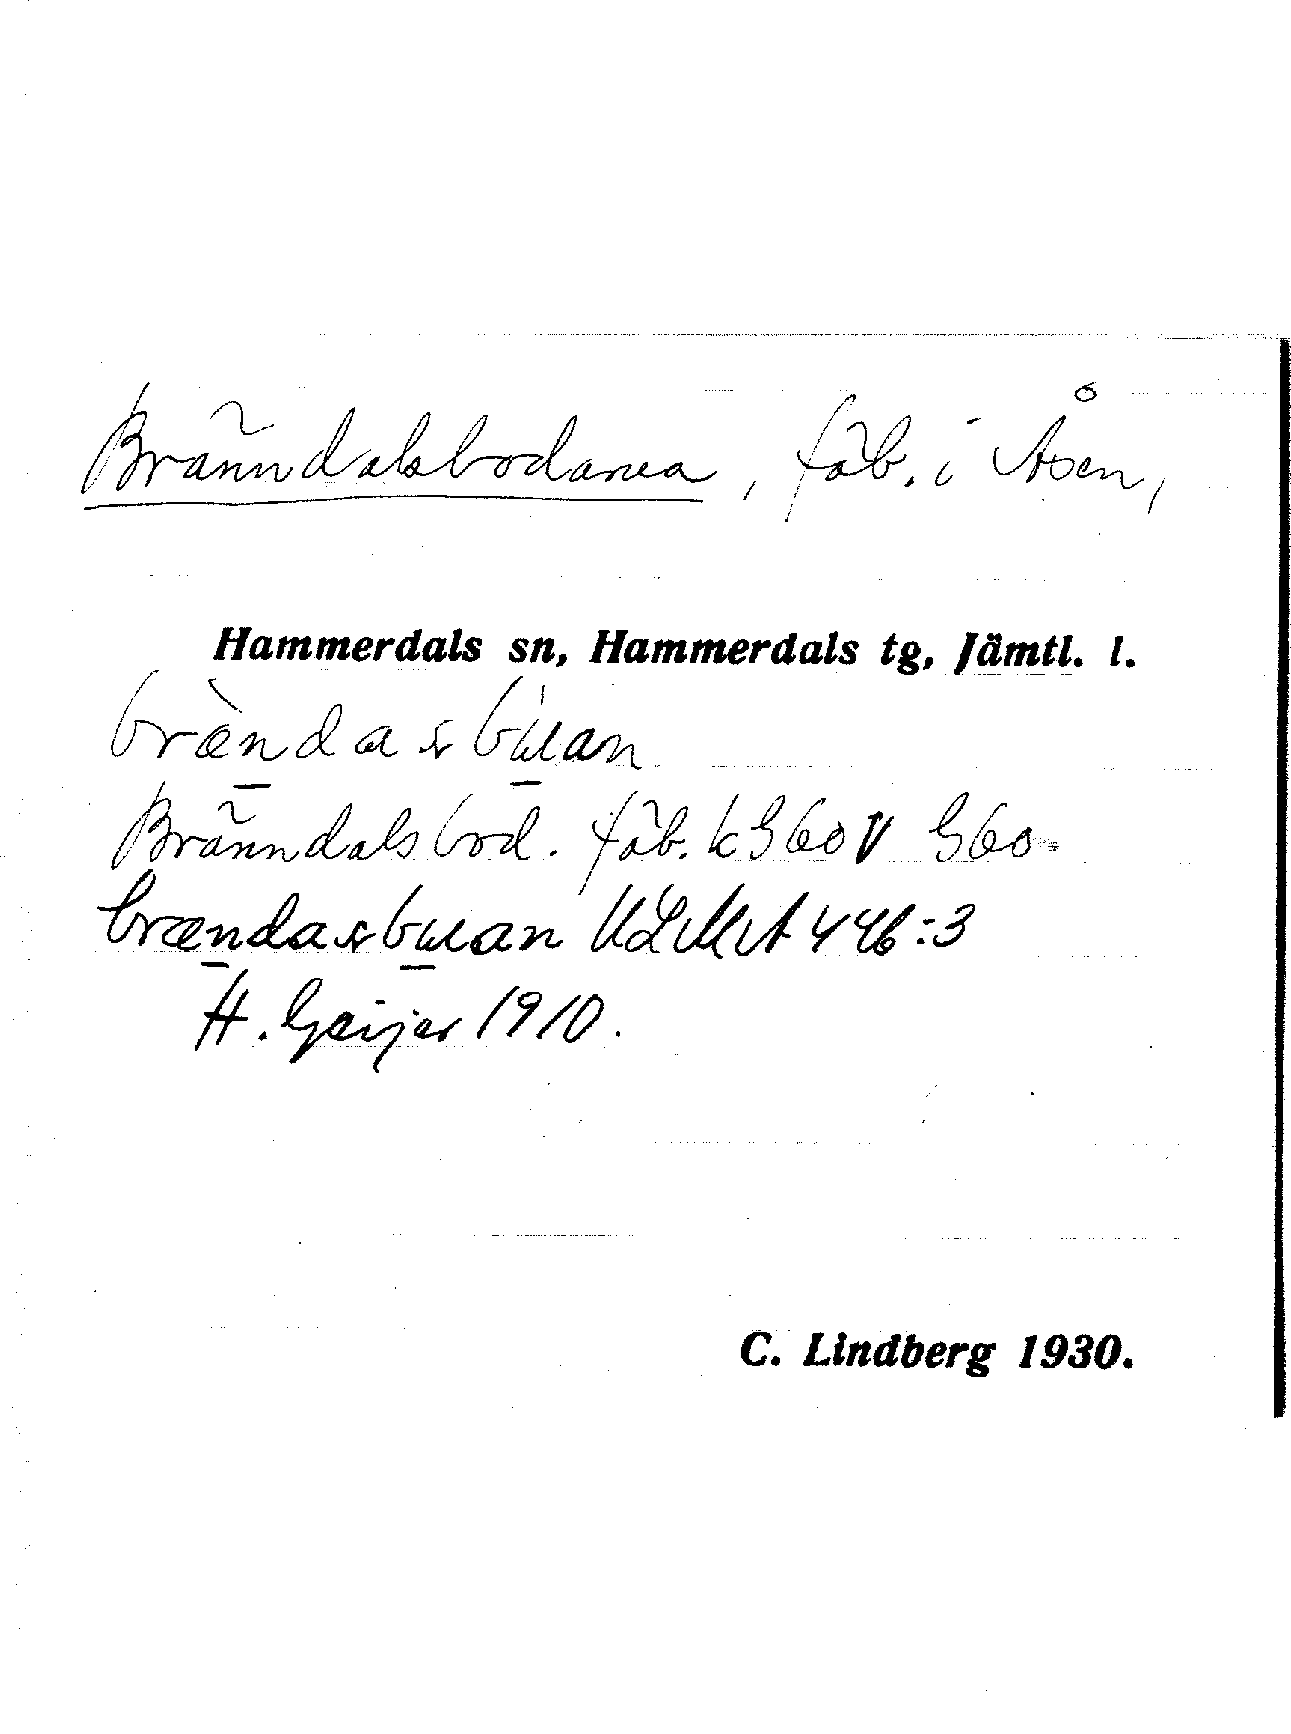 Bränndalsbodarna, fäb. i Åsen,
Hammerdals sn, Hammerdals tg, Jämtl. l.
brændasbuan
Bränndalsbod. fäb. k G60V G60
brændasbuan ULMA 446:3
H. Geijer 1910.
C. Lindberg 1930.